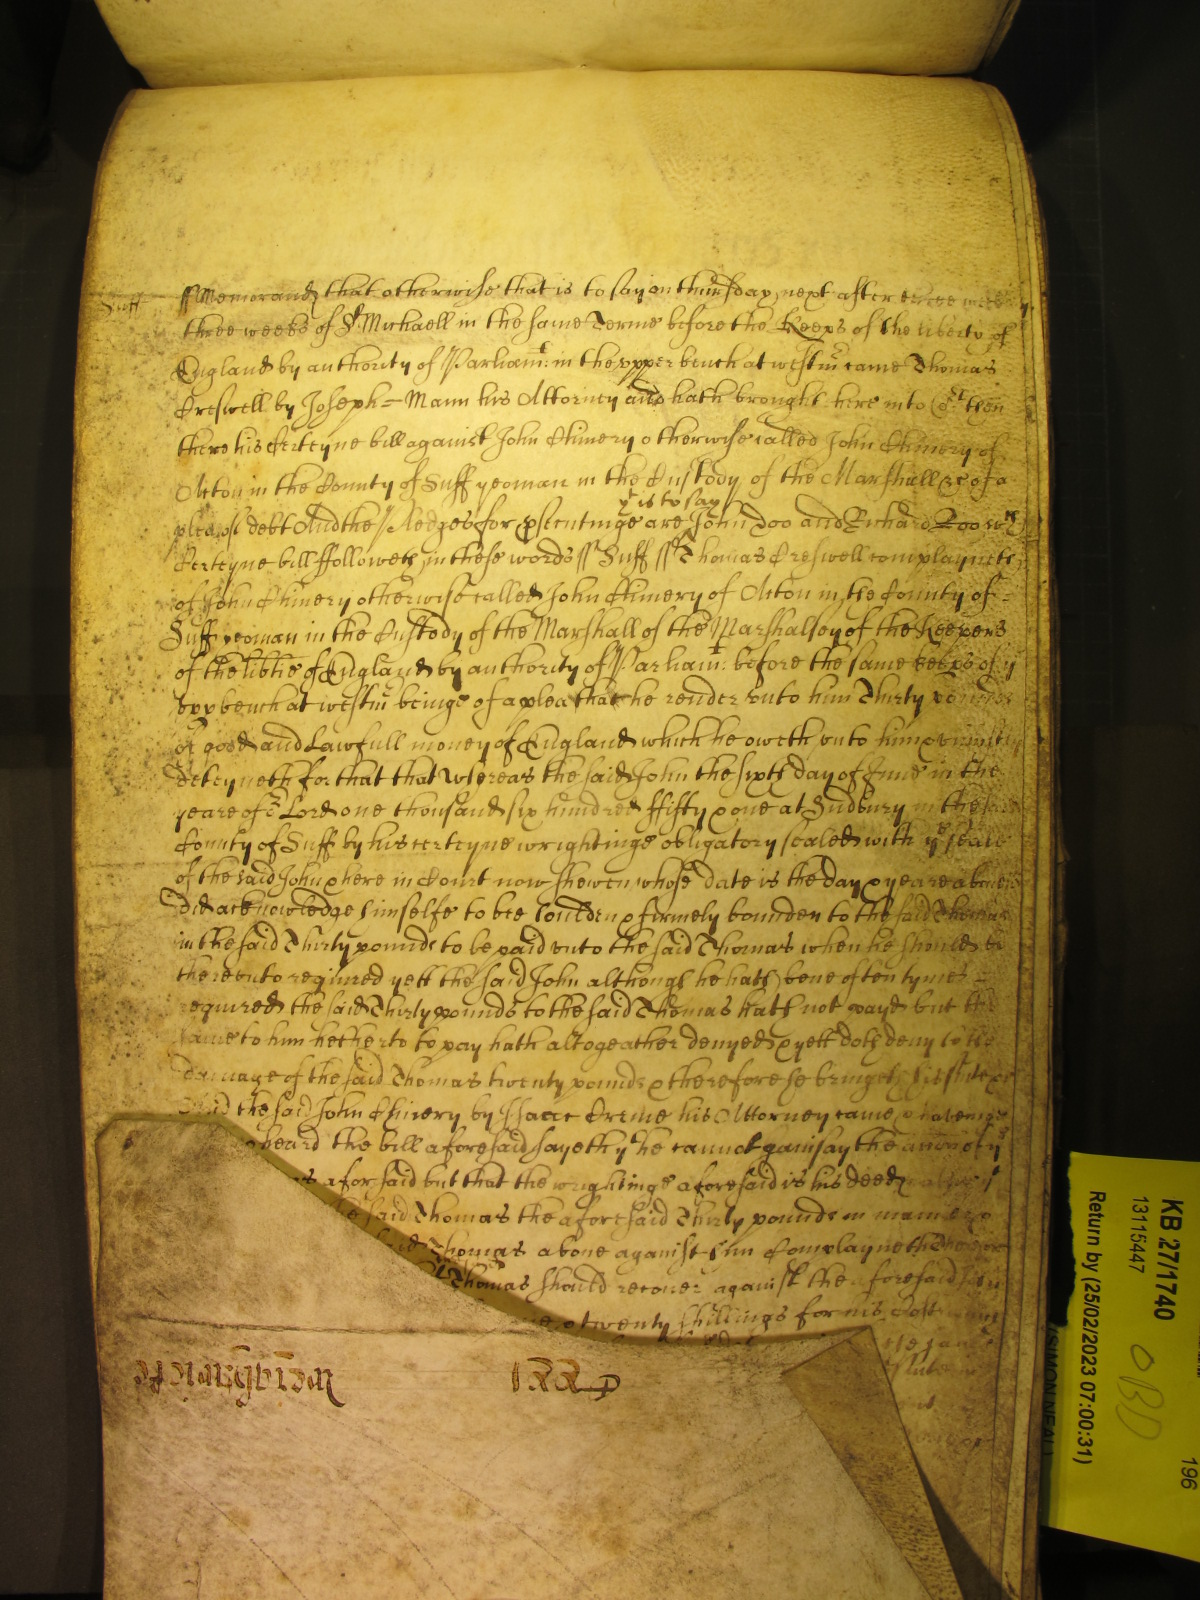 Suff
ss Memorand that otherwise that is to say on thursday next after
three weeks of St Michaell in the same Terme before the Keeps of the liberty of
England by authority of Parliamt: in the upper bench at westm came Thomas
Creswell by Joseph = Mann his Attorney and hath brought here into Cort then
there his certeyne bill against John Chinery otherwise called John Chinery of
Acton in the County of Suff yeoman in the Custody of the Marshall &c of a
yt is to say
plea of debt And the Pledges for psecutinge are John Doo and Richard Roo wch
Certeyne bill ffolloweth in these words ss Suff ss Thomas Creswell complayneth
of John Chinery otherwise called John Chinery of Acton in the County of =
Suff yeoman in the Custody of the Marshall of the Marshalsey of the Keepers
of the libtie of England by authority of Parliamt: before the same keeps of ye
upp bench at westm beinge of a plea that he render unto him Thirty pounds
of good and Lawfull money of England which he oweth unto him & uniustly
deteyneth for that that whereas the said John the sixth day of June in the
yeare of or Lord one thousand six hundred ffifty & one at Sudbury in the
County of Suff by his certeyne wrightinge obligatory sealed with ye seale
of the said John & here in Court now shewen whose date is the day & yeare above
did acknowledge himselfe to bee houlden & firmely bounden to the said Thomas
in the said Thirty pounds to be paid unto the said Thomas when he should be
thereunto required yett the said John although he hath bene often tymes =
required the said Thirty pounds to the said Thomas hath not payd but the
same to him hetherto to pay hath altogeather denyed & yett doth deny to the
damage of the said Thomas twenty pounds & therefore he bringeth his suite &c
And the said John Chinery by Isacc Creme his Attorney came &
heard the bill aforesaid sayeth yt he cannot gainsay the
aforsaid but that the wrightinge aforesaid is his deed
said Thomas the aforesaid Thirty pounds in manner
Thomas above against him Complayneth
Thomas should recover against the aforesaid
twenty shillings for his Costs
KB 27/1740
13115447
Return by (25/02/2023 07:00:31)
196
(SIMON NEAL)
OBD